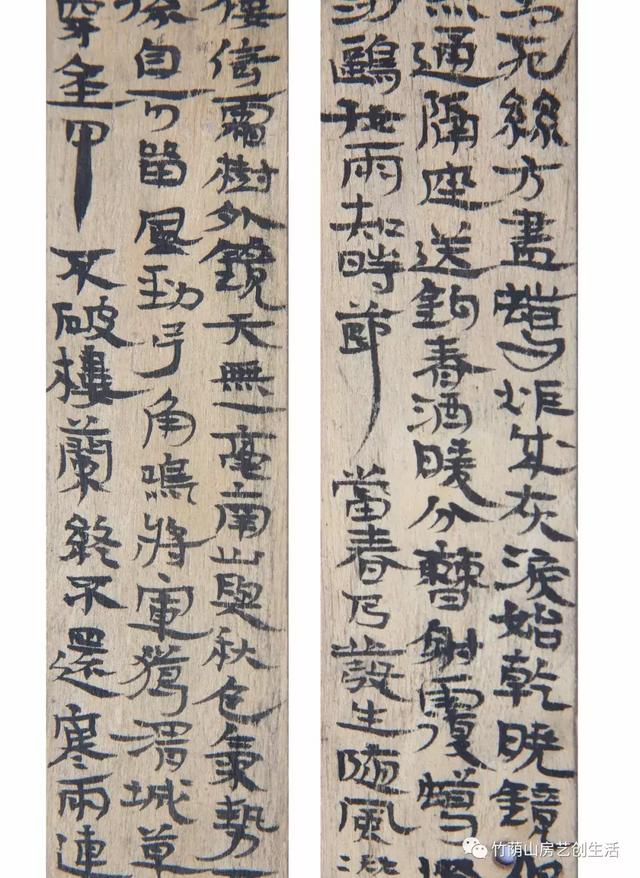 死絲方盡蠟炬成灰淚始乾曉鏡但
點通隔座送鉤春酒暖分曹射覆蠟燈
沙鷗好雨知時節當春乃發生隨風
樓倚霜樹外鏡天無一毫南山與秋色氣勢
孫自可留風勁弓角鳴將軍獵渭城草
穿金甲不破樓蘭終不還寒雨連
竹荫山房艺创生活